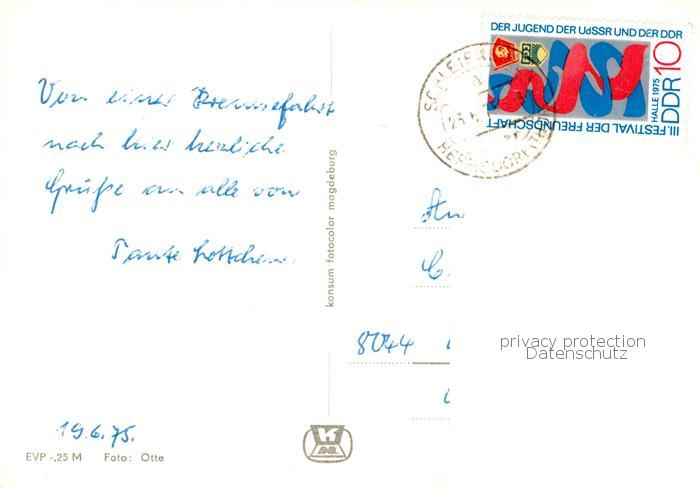 DER JUGEND DER UdSSR UND DER DDR
III. FESTIVAL DER FREUNDSCHAFT
HALLE 1975
DDR 10
Von einer Brennesfahrt
nach hier herzliche
Grüße an alle von
Tante Lottchen.
konsum fotocolor magdeburg
An
8044
privacy protection
Datenschutz
19.6.75.
EVP -,25 M Foto: Otte
K